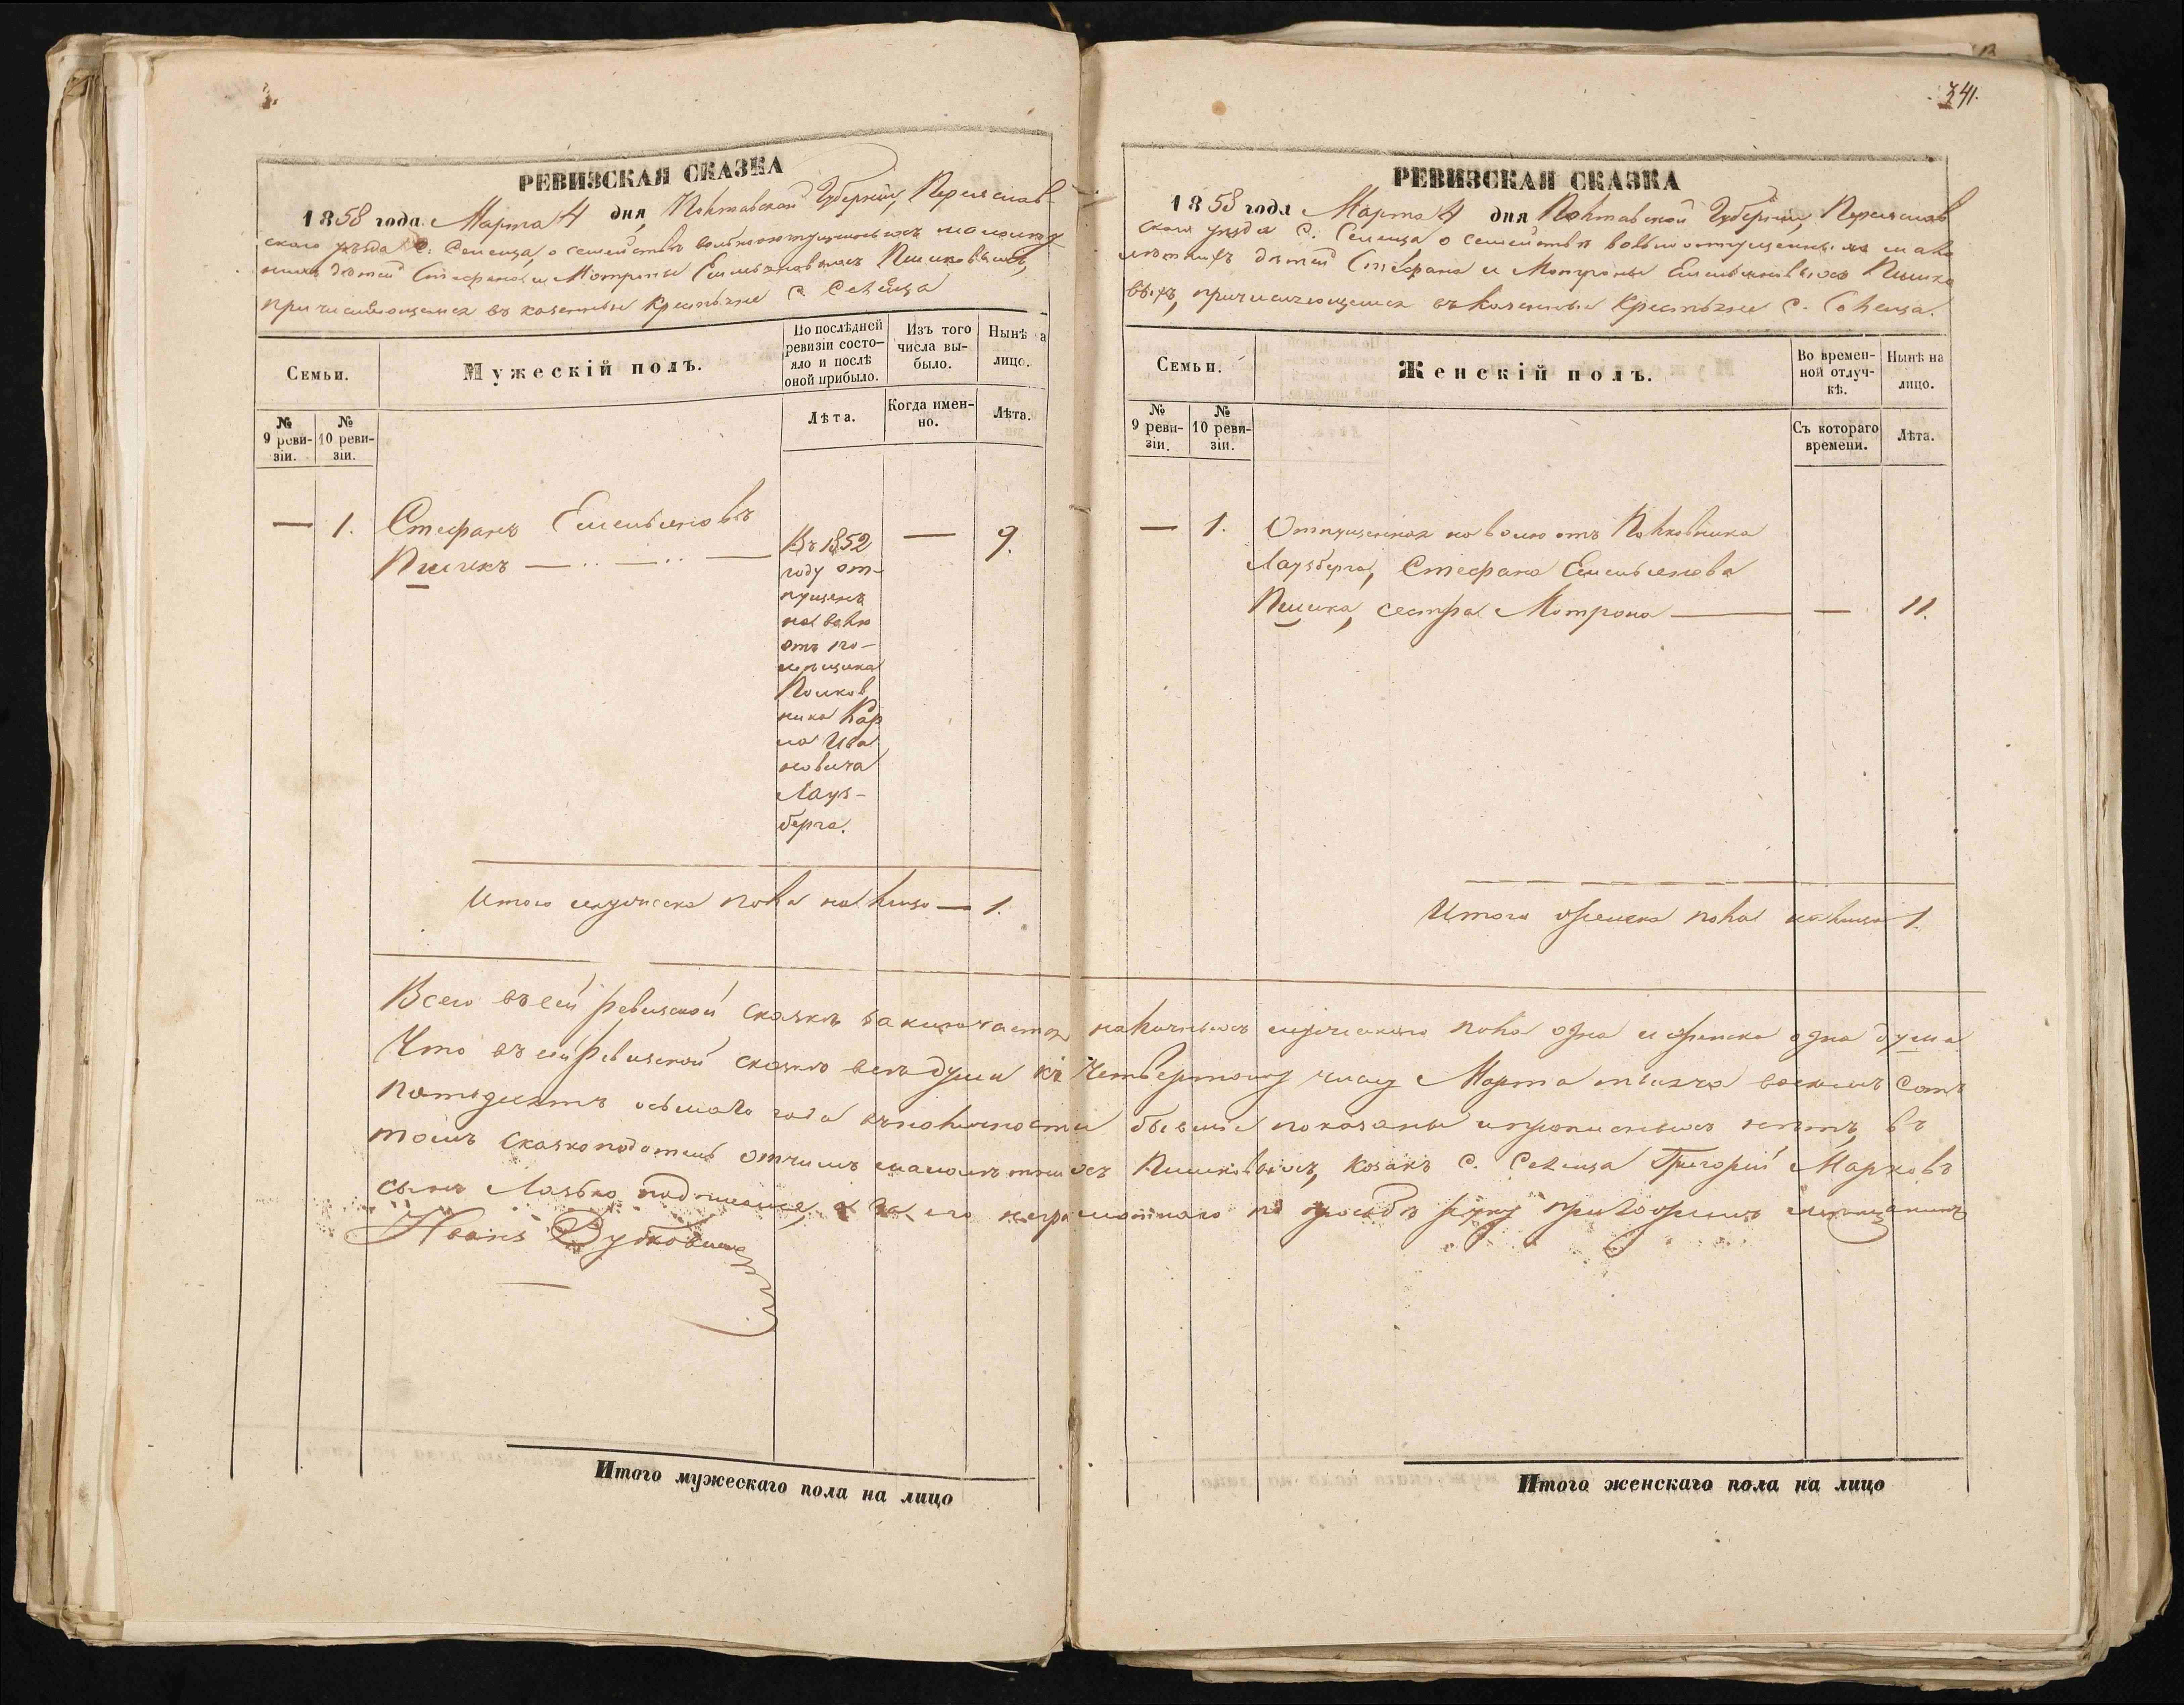 341.
РЕВИЗСКАЯ СКАЗКА
1858 года Марта 4 дня, Полтавской Губерніи, Переяслав-
скаго уѣзда с. Селища, о семействѣ вольноотпущенныхъ малолѣт
нихъ дѣтей Стефана и Мотроны Емельяновыхъ Пшиковыхъ,
причисляющемся въ казенные крестьяне с. Селища
Семьи.
Мужескій полъ.
По послѣдней ревизіи состо-
яло и послѣ оной прибыло.
Изъ того числа вы-
было.
Нынѣ на лицо.
№ 9 реви-
зіи.
№ 10 реви-
зіи.
Лѣта.
Когда имен-
но.
Лѣта.
— 1. Стефанъ Емельяновъ
Пшикъ — — — 9.
Въ 1852
году от-
пущенъ
на волю
отъ по-
мѣщика
Полков
ника Кар
ла Ива
новича
Лауз-
берга.
Итого мужеска пола на лицо — 1.
РЕВИЗСКАЯ СКАЗКА
1858 года Марта 4 дня Полтавской Губерніи, Переяслав
скаго уѣзда с. Селища о семействѣ вольноотпущенныхъ мало
лѣтнихъ дѣтей Стефана и Мотроны Емельяновыхъ Пшико
выхъ, причисляющемся въ казенные крестьяне с. Селища.
Семьи.
Женскій полъ.
Во времен-
ной отлуч-
кѣ.
Нынѣ на
лицо.
№ 9 реви-
зіи.
№ 10 реви-
зіи.
Съ котораго
времени.
Лѣта.
— 1. Отпущенная на волю отъ Полковника
Лаузберга, Стефана Емельянова
Пшика, сестра Мотрона — — 11.
Итого женска пола на лицо 1.
Всего въ сей ревизской сказкѣ заключается наличныхъ мужескаго пола одна и женска одна душа
Что въ сей ревизской сказкѣ всѣ души къ четвертому числу Марта тысяча восемь сотъ
пятьдесятъ осьмого года въ наличности бывшіе показаны и прописныхъ нѣтъ, въ
томъ сказкоподатель отчимъ малолѣтнихъ Пшиковыхъ, козакъ с. Селища Григорій Марковъ
сынъ Лазько подписуюсь, а за его неграмотнаго по просьбѣ руку приложилъ мѣщанинъ
Иванъ
Итого мужескаго пола на лицо
Итого женскаго пола на лицо